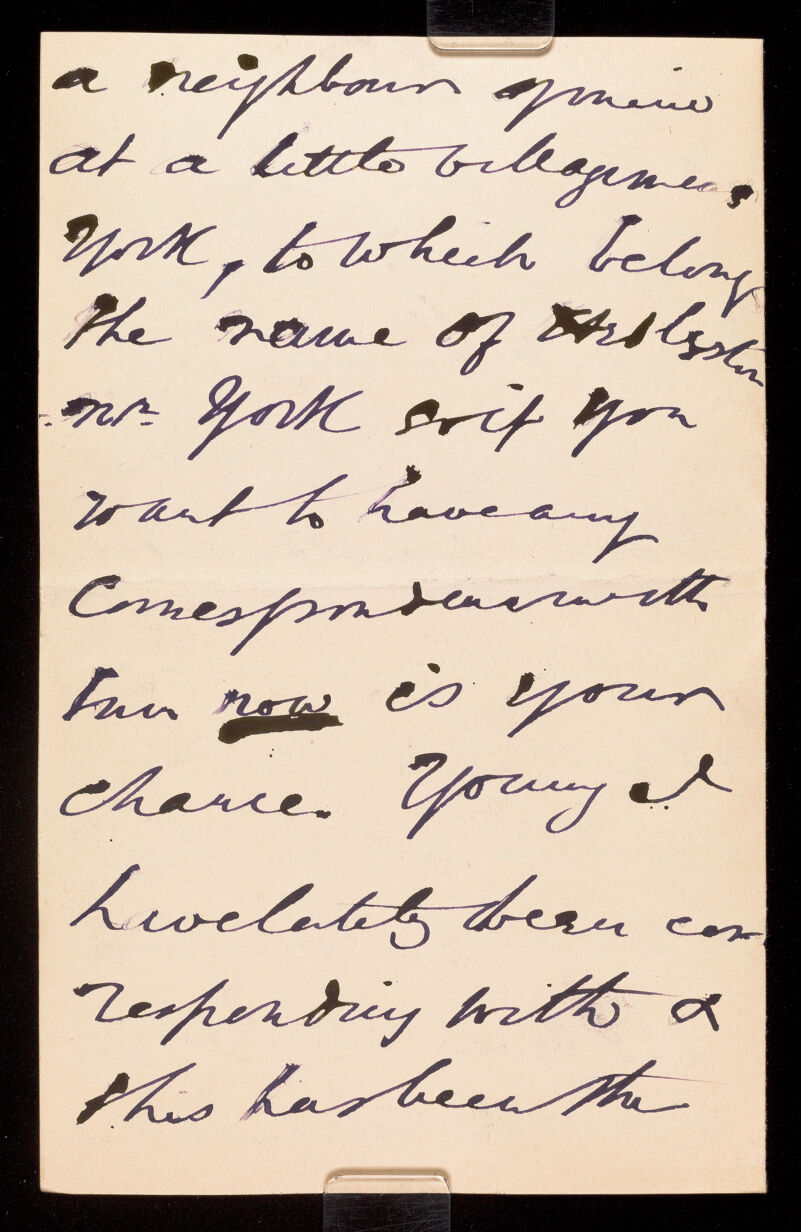 a neighbour of mine
at a little village near
York, to which belong
the name of Heslington
nr. York so if you
want to have any
correspondence with
him now is your
chance. Young I
have lately been cor-
responding with &
this has been the